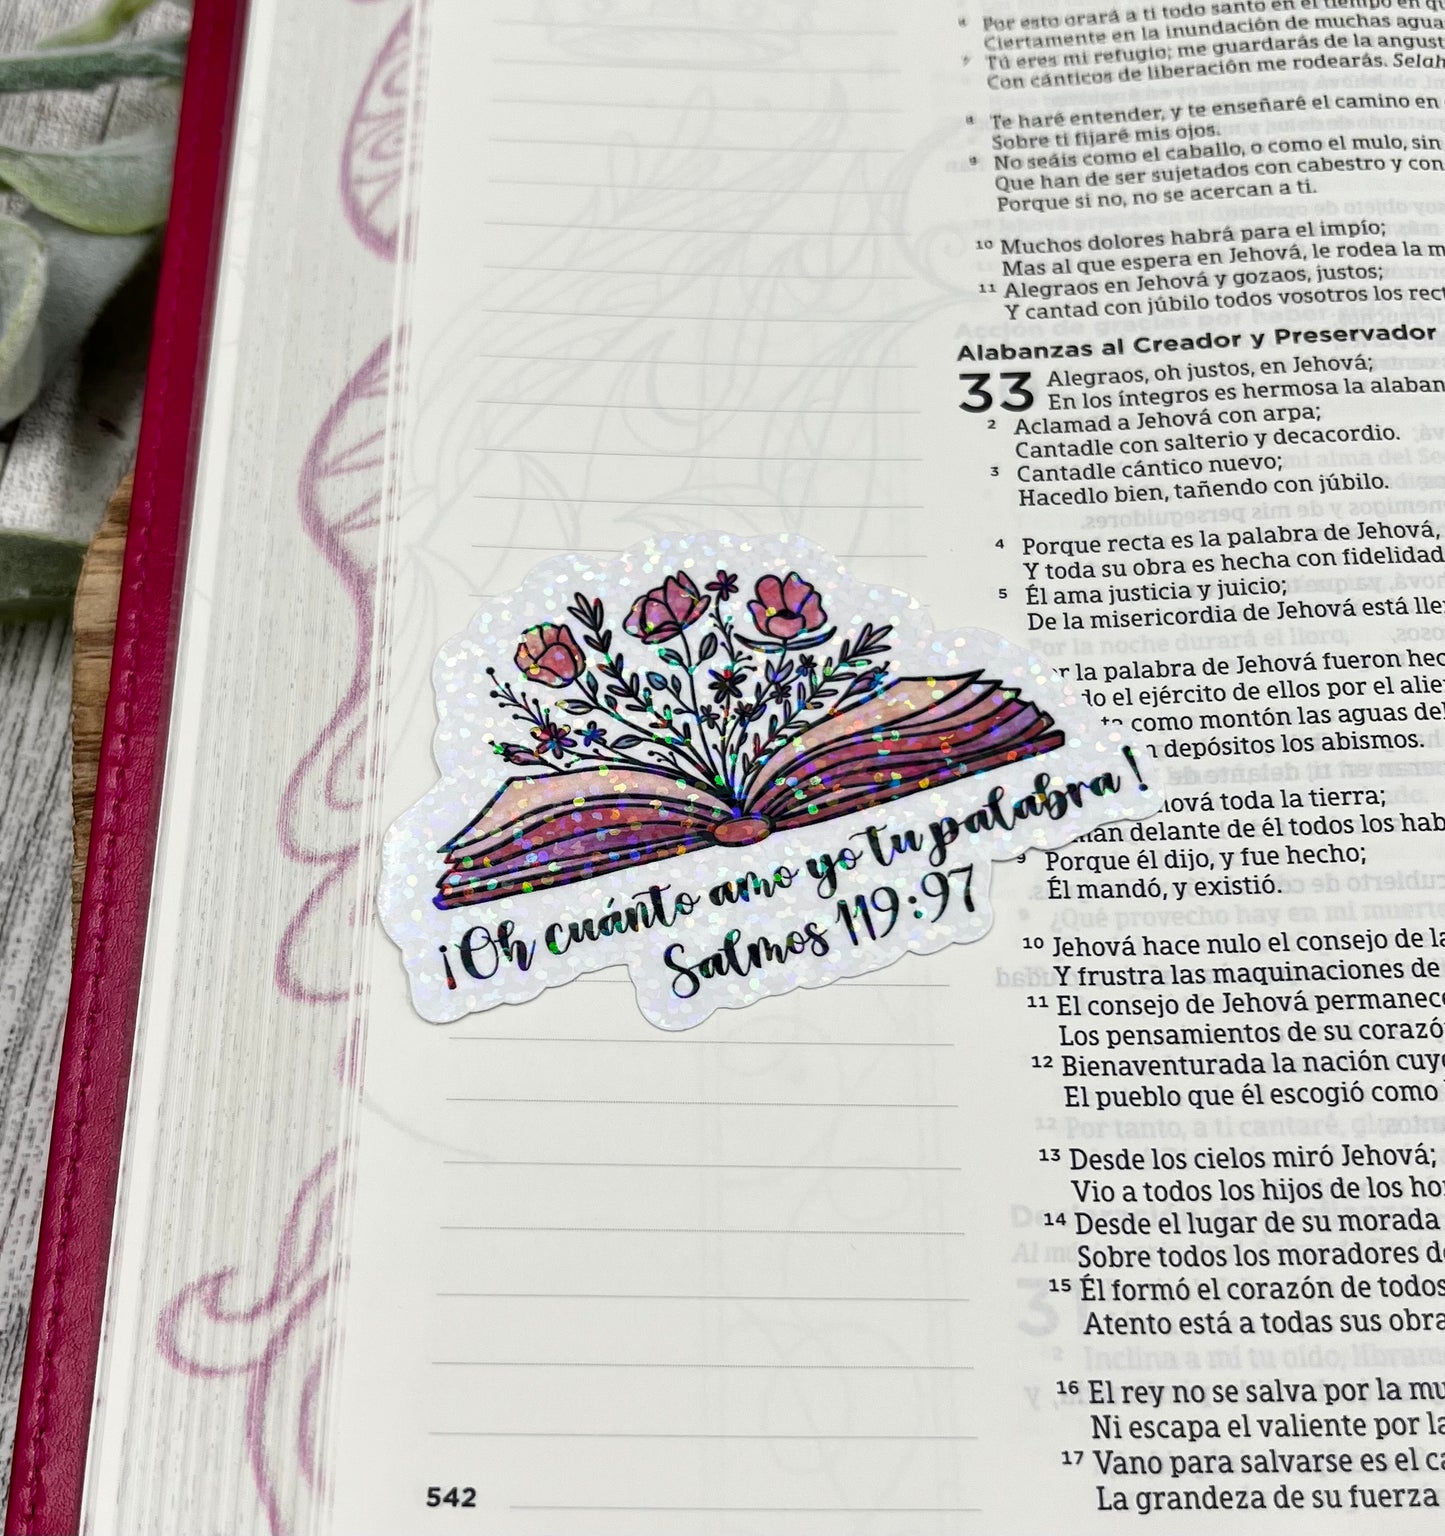 6 Por esto orará a ti todo santo en el tiempo en
Ciertamente en la inundación de muchas
7 Tú eres mi refugio; me guardarás de la
Con cánticos de liberación me rodearás. Selah
8 Te haré entender, y te enseñaré el camino en
Sobre ti fijaré mis ojos.
9 No seáis como el caballo, o como el mulo, sin
Que han de ser sujetados con cabestro y con
Porque si no, no se acercan a ti.
10 Muchos dolores habrá para el impío;
Mas al que espera en Jehová, le rodea la m
11 Alegraos en Jehová y gozaos, justos;
Y cantad con júbilo todos vosotros los rect
Alabanzas al Creador y Preservador
33 Alegraos, oh justos, en Jehová;
En los íntegros es hermosa la alaban
2 Aclamad a Jehová con arpa;
Cantadle con salterio y decacordio.
3 Cantadle cántico nuevo;
Hacedlo bien, tañendo con júbilo.
4 Porque recta es la palabra de Jehová,
Y toda su obra es hecha con fidelidad
5 Él ama justicia y juicio;
De la misericordia de Jehová está lle
r la palabra de Jehová fueron hec
do el ejército de ellos por el alie
como montón las aguas de
depósitos los abismos.
¡Oh cuánto amo yo tu palabra!
Salmos 119:97
ová toda la tierra;
delante de él todos los hab
9 Porque él dijo, y fue hecho;
Él mandó, y existió.
10 Jehová hace nulo el consejo de
Y frustra las maquinaciones de
11 El consejo de Jehová permanec
Los pensamientos de su corazó
12 Bienaventurada la nación cuy
El pueblo que él escogió como
13 Desde los cielos miró Jehová;
Vio a todos los hijos de los ho
14 Desde el lugar de su morada
Sobre todos los moradores d
15 Él formó el corazón de todos
Atento está a todas sus obra
16 El rey no se salva por la mu
Ni escapa el valiente por la
17 Vano para salvarse es el ca
La grandeza de su fuerza
542